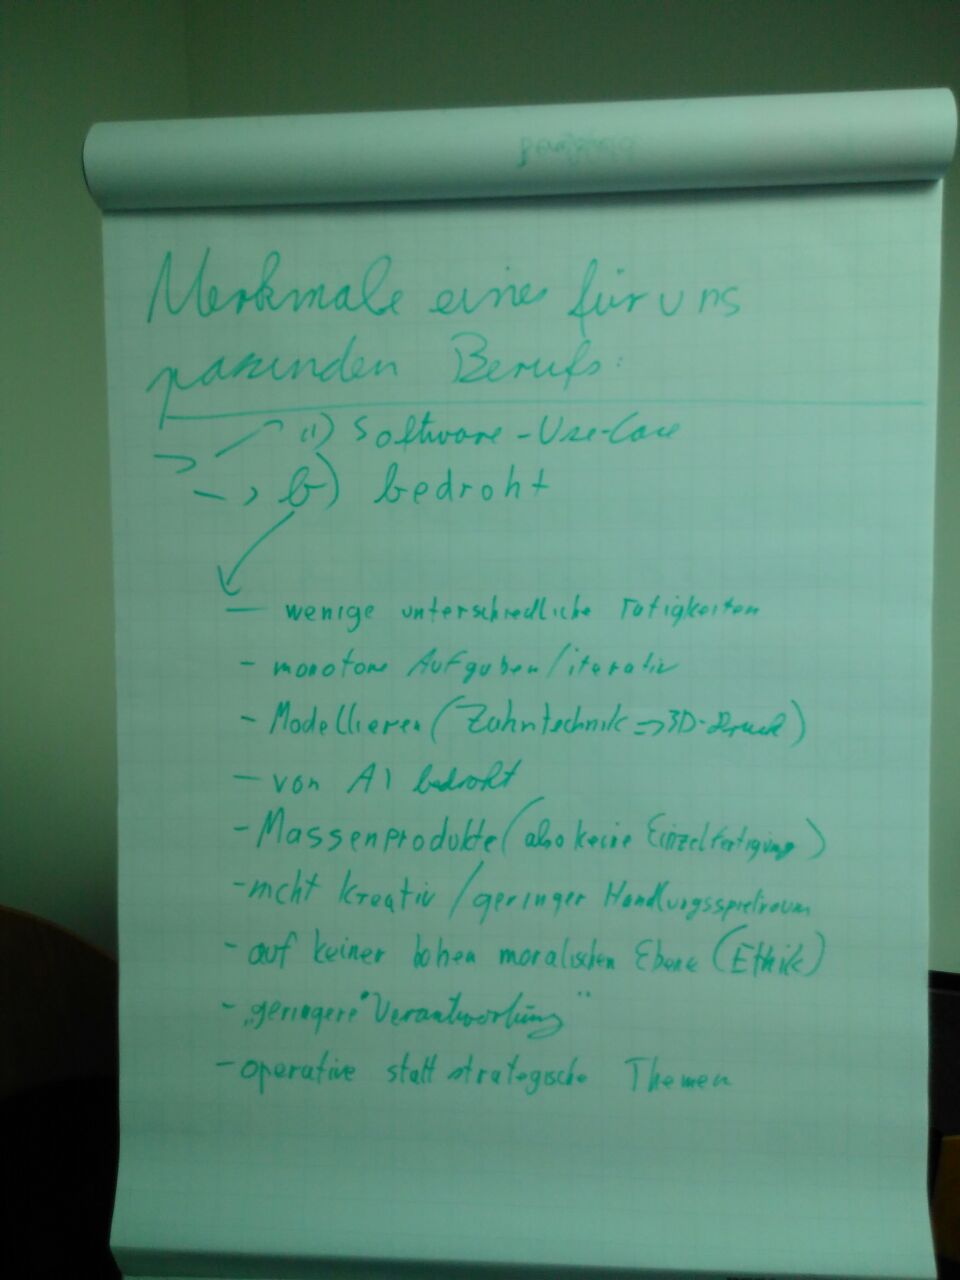 Merkmale eines für uns
passenden Berufs:
Software-Use-Case
b) bedroht
- wenige unterschiedliche Tätigkeiten
- monotone Aufgaben/iterativ
- Modellieren (Zahntechnik => 3D-Druck)
- von AI bedroht
- Massenprodukte (also keine Einzelfertigung)
- nicht kreativ / geringer Handlungsspielraum
- auf keiner hohen moralischen Ebene (Ethik)
- „geringere" Verantwortung"
- operative statt strategische Themen